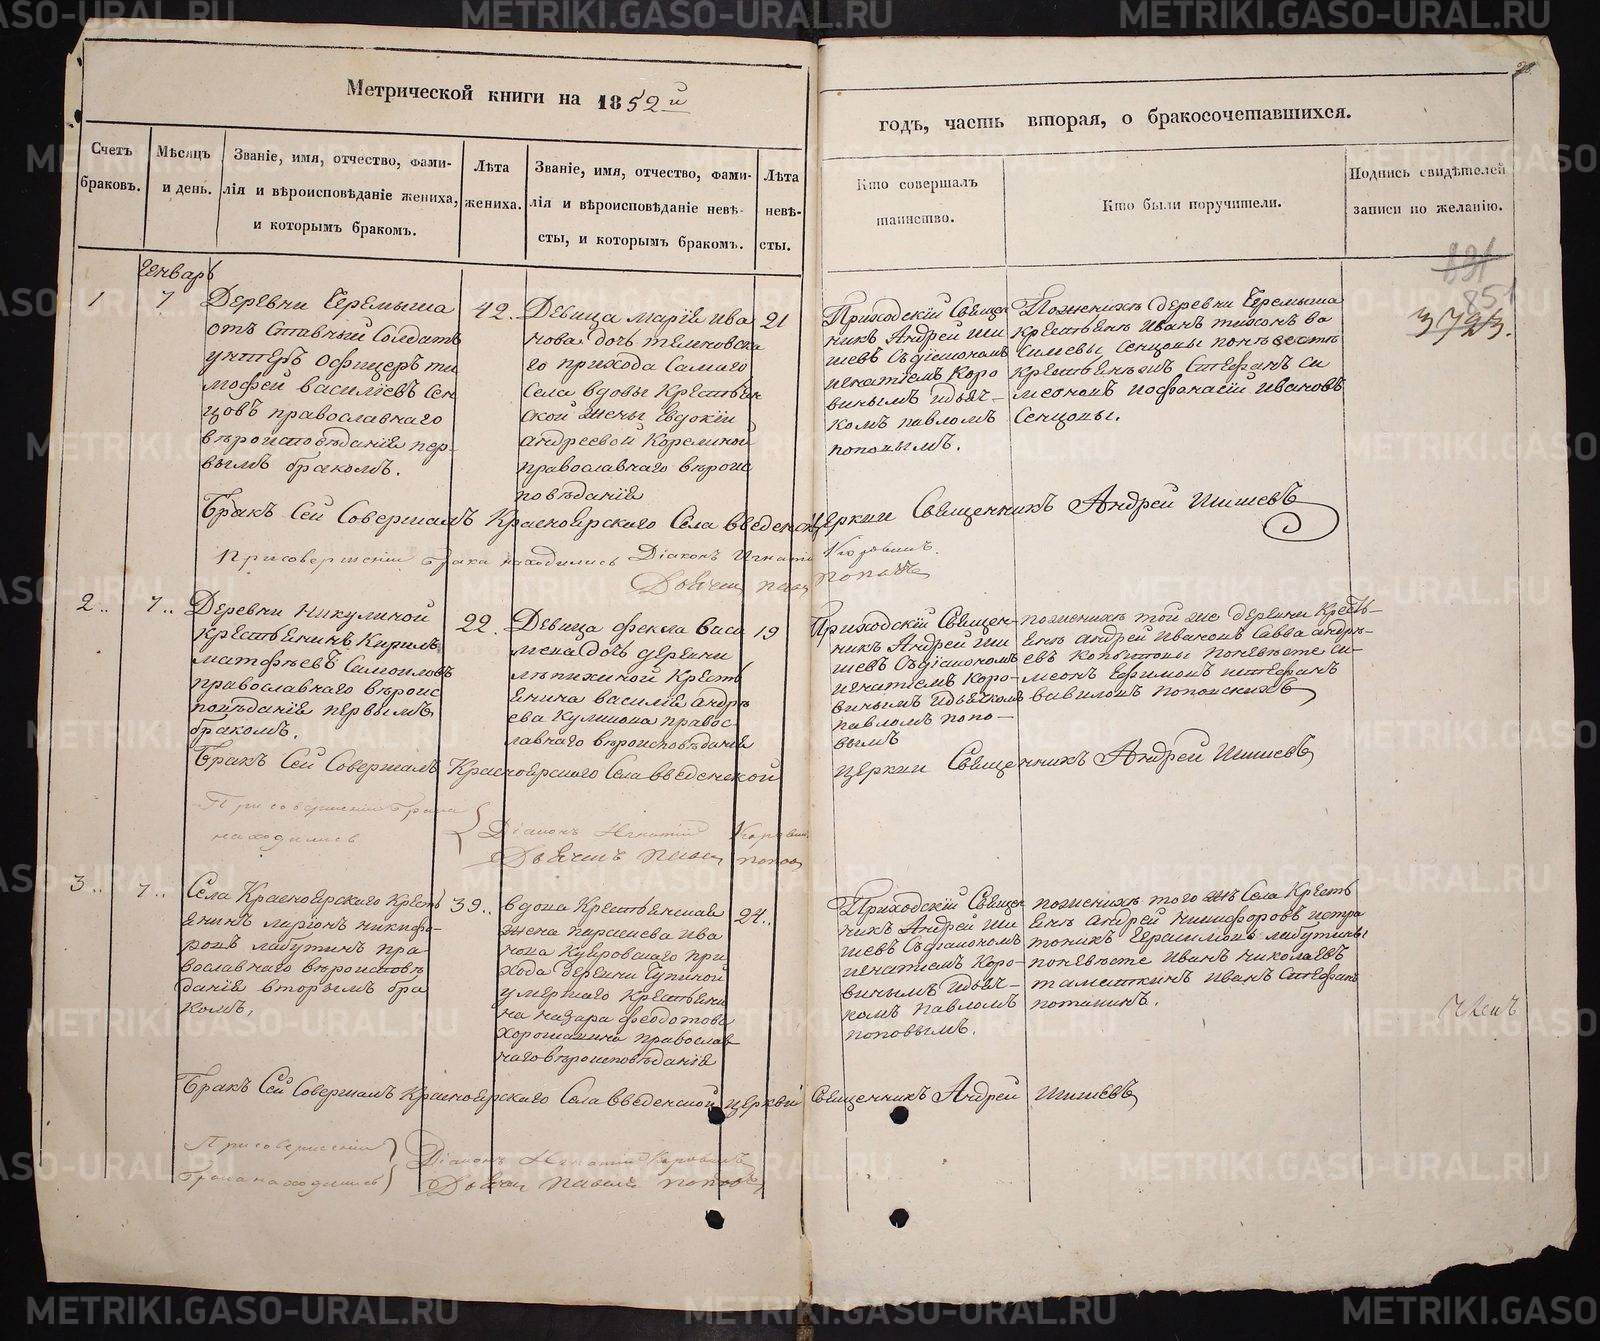 Метрической книги на 1852 й
годъ, часть вторая, о бракосочетавшихся.
Счетъ браковъ.
Мѣсяцъ и день.
Званіе, имя, отчество, фами-
лія и вѣроисповѣданіе жениха,
и которымъ бракомъ.
Лѣта жениха.
Званіе, имя, отчество, фами-
лія и вѣроисповѣданіе невѣ-
сты, и которымъ бракомъ.
Лѣта невѣ-
сты.
Кто совершалъ
таинство.
Кто были поручители.
Подпись свидѣтелей
записи по желанію.
Генварь
1
7
Деревни Черемыша
отъ ставный Солдатъ
унтеръ офицеръ ти
мофей василіевъ Сен
цовъ православнаго
вѣроисповѣданіе пер-
вымъ бракомъ.
42.
Девица марія ива
нова дочь
го прихода Самаго
села вдовы Крестьян
ской жены Евдокіи
андреевой Корелиной
православнаго вѣроис
повѣданіе
21
Приходскій Священ
никъ Андрей Ши
шевъ Съдіакономъ
игнатіемъ Коро
винымъ идьяч-
комъ павломъ
поповымъ.
Поженихѣ деревни Черемыша
Крестьянѣ Иванъ тихонъ ва
Сенцовы понѣвестѣ
Стефанъ Си
Ивановъ
Сенцовы.
3723.
Бракъ Сей Совершалъ Красноярскаго Села введенск церкви Священникъ Андрей Шишевъ
Присовершеніи брака находились Діаконъ Игнатій Коровинъ.
Дьячекъ павел поповъ
2..
7..
Деревни Никулиной
Крестьянинъ Кирилъ
матфѣевъ Самоиловъ
православнаго вѣроис
повѣданіе первымъ
бракомъ.
22.
Девица фекла васи
лиева дочь деревни
лѣпихиной Кресть
янина василія андрѣ
ева Куликова правос-
лавнаго вѣроисповѣданіе
19
Приходскій Священ-
никъ Андрей Ши
шевъ Съдіакономъ
игнатіемъ Коро-
винымъ идьячкомъ
павломъ попо-
вымъ
поженихѣ той же деревни Кресть-
янѣ андрей Ивановъ Савва андрѣ-
евъ Копытовы поневѣсте си-
меонъ Ефимовъ истефанъ
вавиловъ
Бракъ Сей Совершалъ Красноярскаго Села введенской церкви Священникъ Андрей Шишевъ
Присовершеніи брака
находились
Діаконъ Игнатій Коровин
Дьячекъ Павел попов
3..
7..
Села Красноярскаго Кресть
янинъ ларіонъ никифо-
ровъ лабутинъ пра-
вославнаго вѣроисповѣ
даніе вторымъ бра
комъ,
39..
вдова Крестьянская
жена ива
нова Куяровскаго при
хода деревни Супиной
умершаго Крестьяни
на назара федотова
православ
наговѣроисповѣданіе
24..
Приходскій Священ
никъ Андрей Ши
шевъ Съдіакономъ
игнатіемъ Коро-
винымъ идьяч-
комъ павломъ
поповымъ.
поженихѣ того жъ Села Кресть
янѣ андрей никифоровъ истра
тоникъ Герасимовъ лабутины
поневѣсте Иванъ николаевъ
Иванъ Стефан
Бракъ Сей Совершалъ Красноярскаго Села введенской церкви Священникъ Андрей Шишевъ
Присовершеніи
брака находились
Діаконъ Игнатій Коровинъ
Дьячек Павелъ поповъ
METRIKI.GASO-URAL.RU